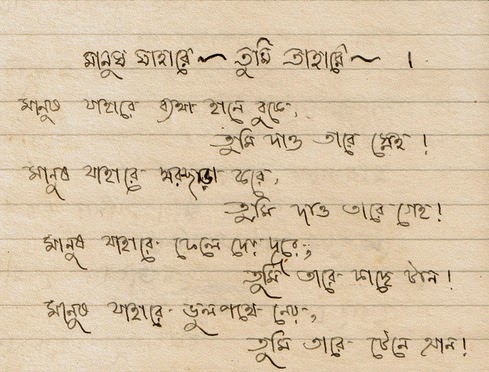 মানুষ যাহারে ~ তুমি তাহারে ~ ।
মানুষ যাহারে ব্যথা হানে বুকে,
তুমি দাও তারে স্নেহ !
মানুষ যাহারে ঘরছাড়া করে,
তুমি দাও তারে গেহ !
মানুষ যাহারে ফেলে দেয় দূরে,
তুমি তারে কাছে টান !
মানুষ যাহারে ভুলপথে নেয়,
তুমি তারে টেনে আন !